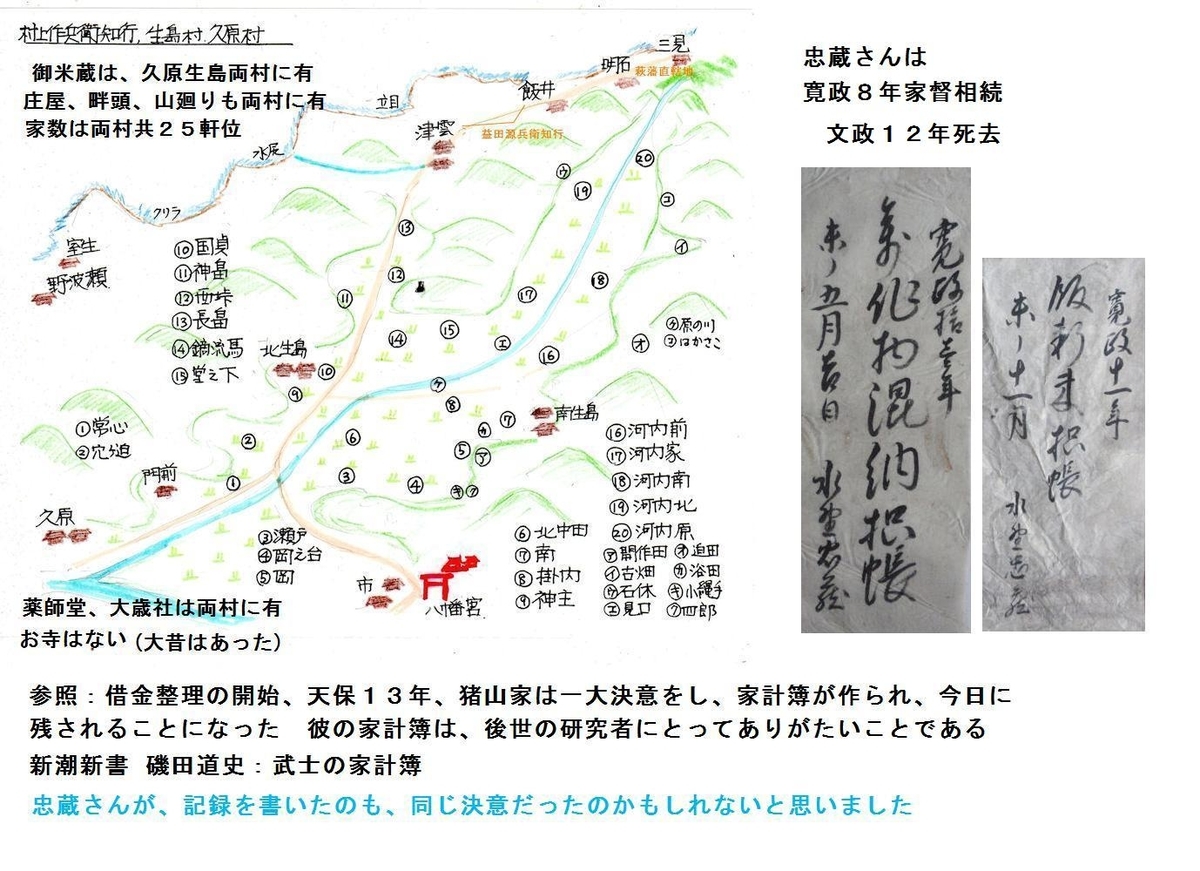 村上作兵衛知行、生島村、久原村
御米蔵は、久原生島両村に有
庄屋、畔頭、山廻りも両村に有
家数は両村共２５軒位
三見
明石
萩藩直轄地
飯井
立目
津雲
益田源兵衛知行
水尻
クリラ
室生
野波瀬
⑳
⑲
⑱
⑰
⑯
⑮
⑭
⑬
⑫
⑪
⑩国貞
⑪神畠
⑫西垰
⑬長畠
⑭鏑流馬
⑮堂之下
北生島
⑩
⑨
⑧
⑦
⑥
⑤
④
③
②
①
南生島
①常心
②穴迫
門前
久原
③瀬戸
④岡之台
⑤岡
市
八幡宮
⑥北中田
⑦南
⑧掛内
⑨神主
⑯河内前
⑰河内家
⑱河内南
⑲河内北
⑳河内原
㋐開作田
㋑古畑
㋒石休
㋓見口
㋔迫田
㋕浴田
㋖小縄手
㋗四郎
㋘原の川
㋙はかさこ
薬師堂、大歳社は両村に有
お寺はない（大昔はあった）
忠蔵さんは
寛政８年家督相続
文政１２年死去
寛政拾壱年
万作物混納扣帳
未ノ五月吉日
寛政十一年
飯新米扣帳
未ノ十一月
参照：借金整理の開始、天保１３年、猪山家は一大決意をし、家計簿が作られ、今日に
残されることになった　彼の家計簿は、後世の研究者にとってありがたいことである
新潮新書　磯田道史：武士の家計簿
忠蔵さんが、記録を書いたのも、同じ決意だったのかもしれないと思いました